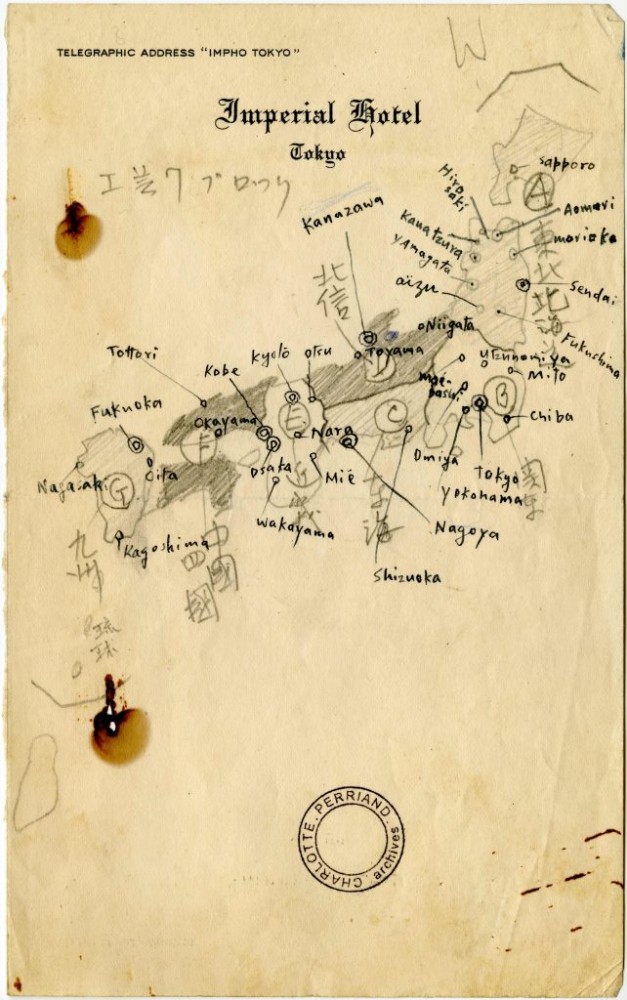 TELEGRAPHIC ADDRESS "IMPHO TOKYO"
Imperial Hotel
Tokyo
工芸7ブロック
Sapporo
A
Hiro
saki
Aomori
Kanazawa
Yamagata
morioka
東北
北海道
北信
aïzu
Sendai
Niigata
Fukushima
Tottori
Kobe
Kyoto
otsu
Toyama
D
Utzunomiya
Mito
maë-
bashi
B
Fukuoka
Okayama
F
E
Nara
C
Chiba
Nagasaki
Oita
G
Osaka
Mië
Omiya
Tokyo
Yokohama
関東
Wakayama
近畿
東海
Nagoya
Kagoshima
九州
中國
四國
Shizuoka
琉球
CHARLOTTE. PERRIAND. archives